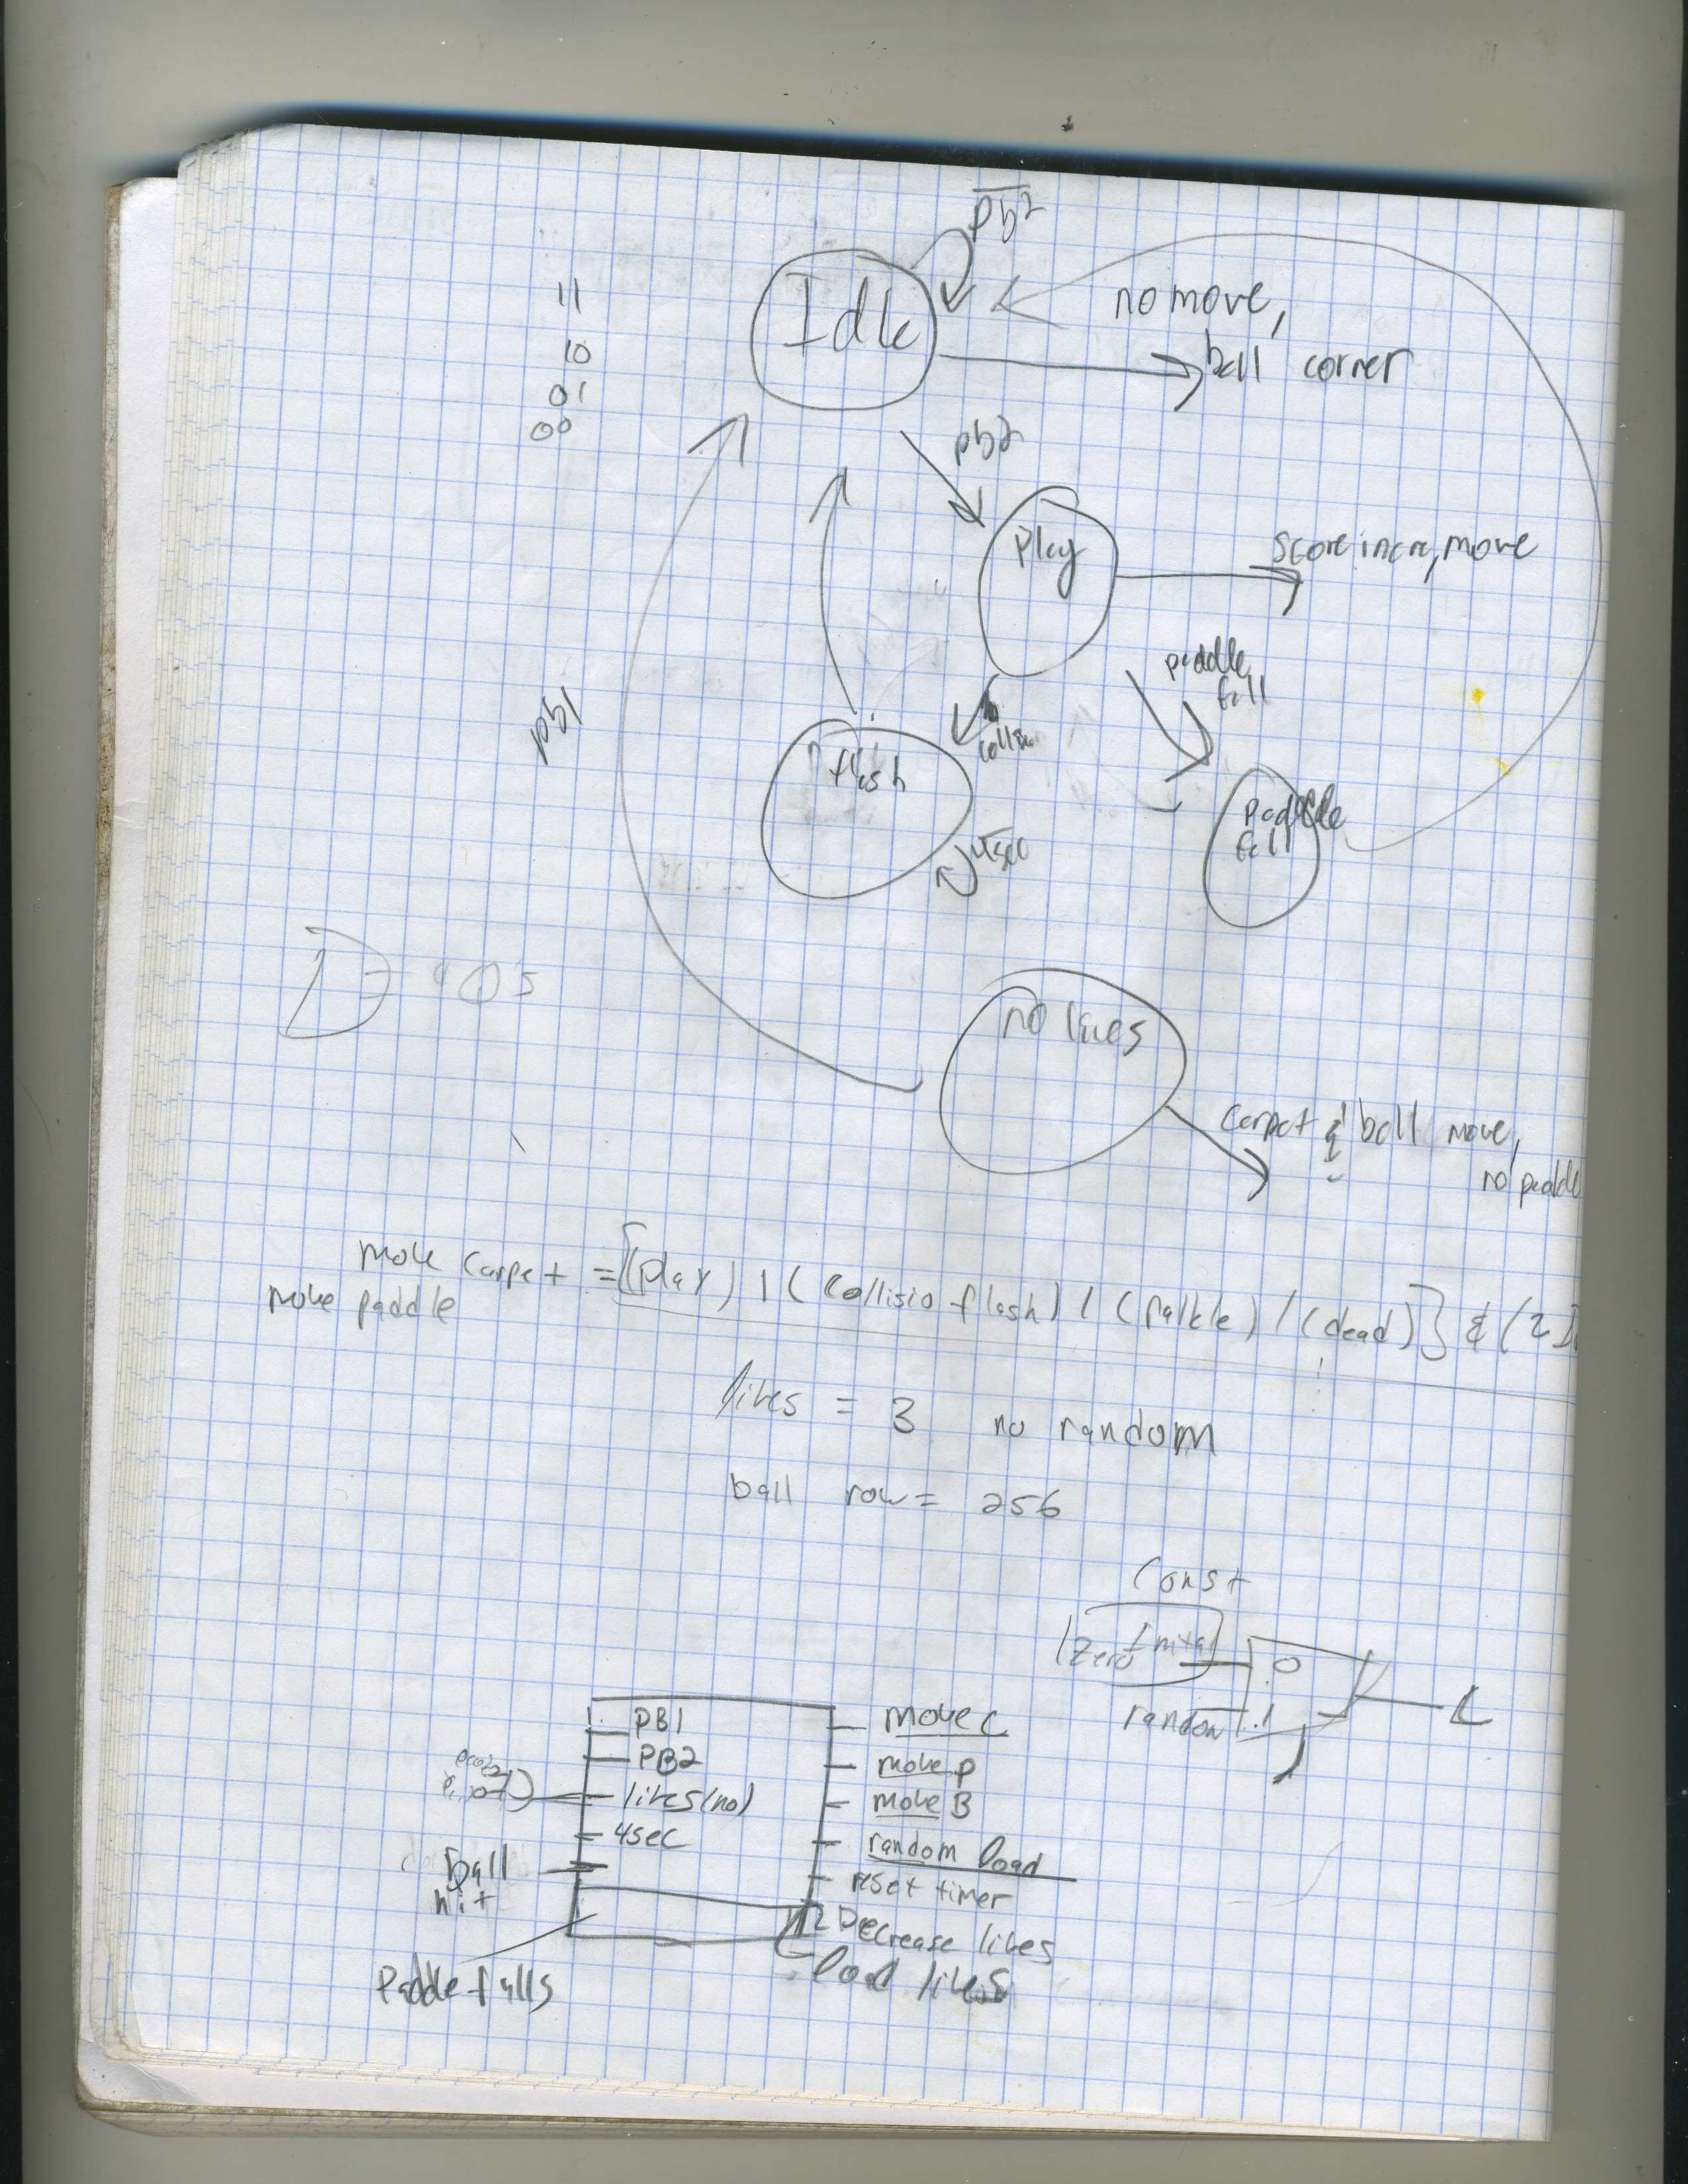 pb2
Idle
no move,
ball corner
11
10
01
00
pb2
Play
score incre, move
paddle
fall
collisn
flash
4sec
paddle
fall
pb1
no lives
carpet & ball move,
no paddle
move carpet = {(play) | (collisio flash) | (
) | (dead)} & (
move paddle
lives = 3 no random
ball row = 256
Const
Zero
0
random 1
L
PB1
PB2
lives (no)
4sec
ball
hit
Paddle falls
move C
move P
move B
random load
reset timer
Decrease lives
load lives